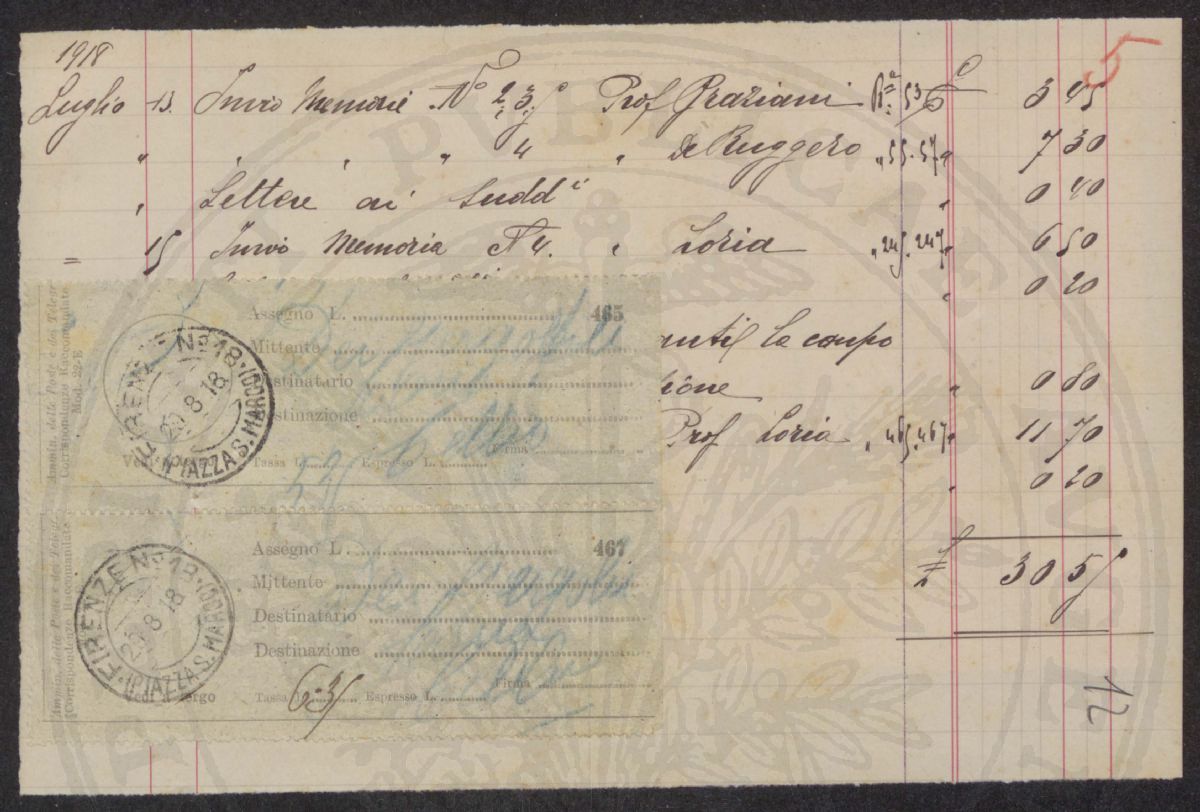 5
1918
Luglio 13. Invio Memorie No 2, 3, e Prof Graziani Rta 53 £ 3 45
" " " " 4 " De Ruggero " 55.57 " 7 30
" Lettere ai Sudd i " 0 40
= 15 Invio Memoria N 4. " Loria " 245.247 " 6 50
" 0 20
antil la coupo
zione " 0 80
Prof Loria " 465.467 " 11 70
" 0 20
£ 30 55
12
Ammin. delle Poste e dei Telegr
Corrispondenze Raccomandate
Mod. 22-E
Assegno L. 465
Mittente
Destinatario
Destinazione
Firma
Vedi a tergo Tassa L. Espresso L.
FIRENZE No 18 · (PIAZZA S. MARCO)
20 8 18
Ammin. delle Poste e dei Telegr
(Corrispondenze Raccomandate
Assegno L. 467
Mittente
Destinatario
Destinazione
Firma
Vedi a tergo Tassa L. 6.35 Espresso L.
FIRENZE No 18 · (PIAZZA S. MARCO)
20 8 18